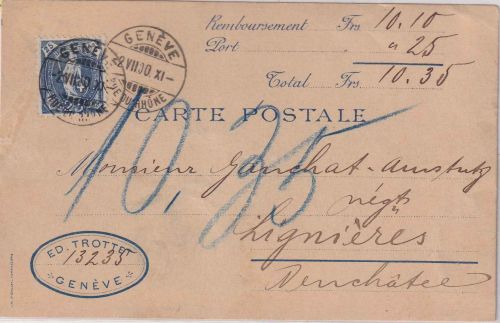 Remboursement Frs. 10.10
Port " 25
Total Frs. 10.35
GENÈVE
2.VII.00.XI-
RUE DU RHÔNE
25
GENÈVE
2.VII.00.XI-
CARTE POSTALE
10,35
Monsieur Gauchat-Amstutz
négt
Lignières
Neuchâtel
ED. TROTTET
13235
GENÈVE